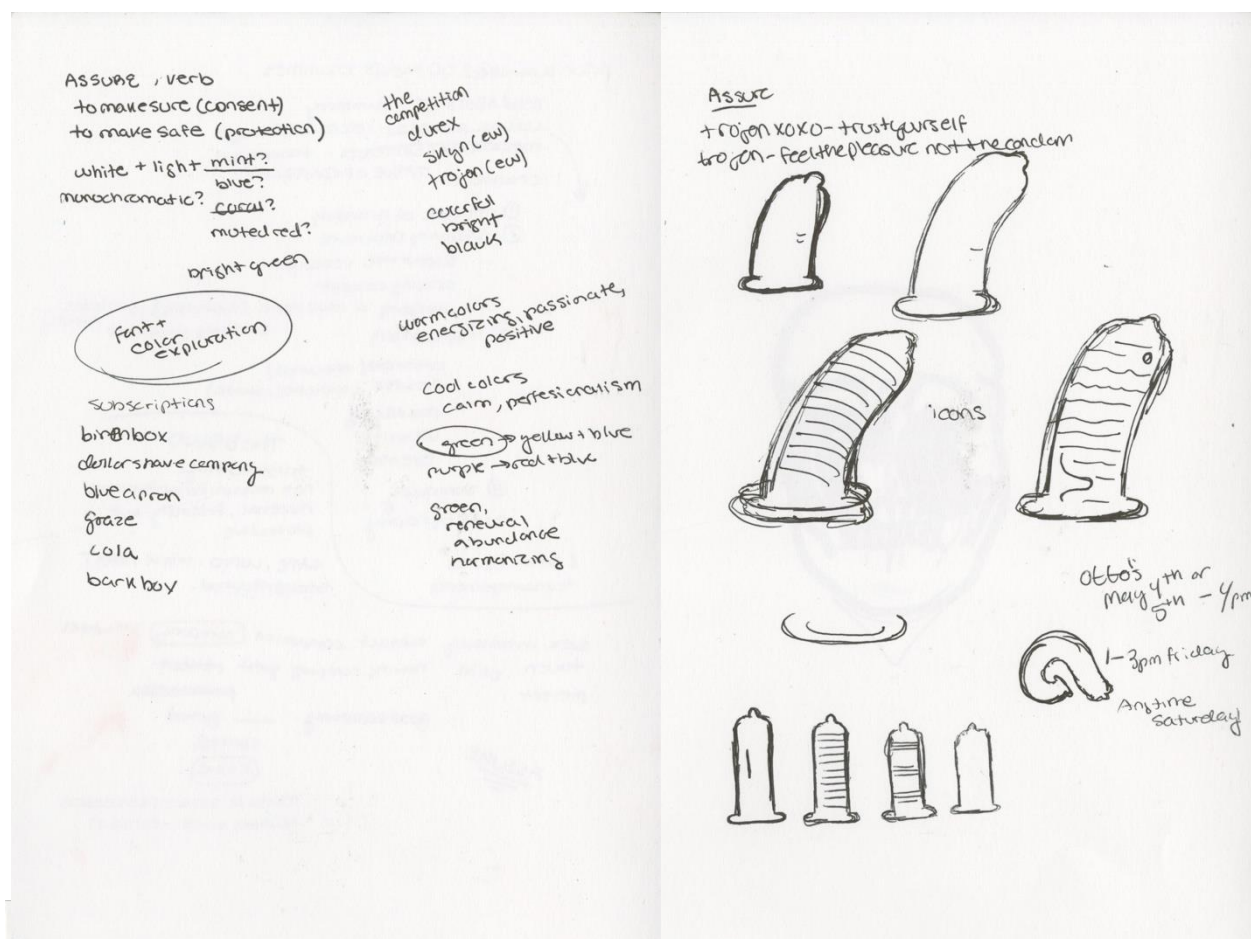 ASSURE, verb
to make sure (consent)
to make safe (protection)
white + light mint?
blue?
monochromatic?
coral?
muted red?
bright green
font +
color
exploration
subscriptions
birchbox
dollar shave company
blue apron
graze
cola
bark box
the
competition
durex
skyn (ew)
trojan (ew)
colorful
bright
black
warm colors
energizing, passionate,
positive
cool colors
calm, perfesionalism
green → yellow + blue
purple → red + blue
green,
renewal
abundance
harmonizing
Assure
trojen xoxo - trust yourself
trojen - feel the pleasure not the condom
icons
Otto's
may 4th or
5th - 4pm
1-3pm friday
Anytime
Saturday